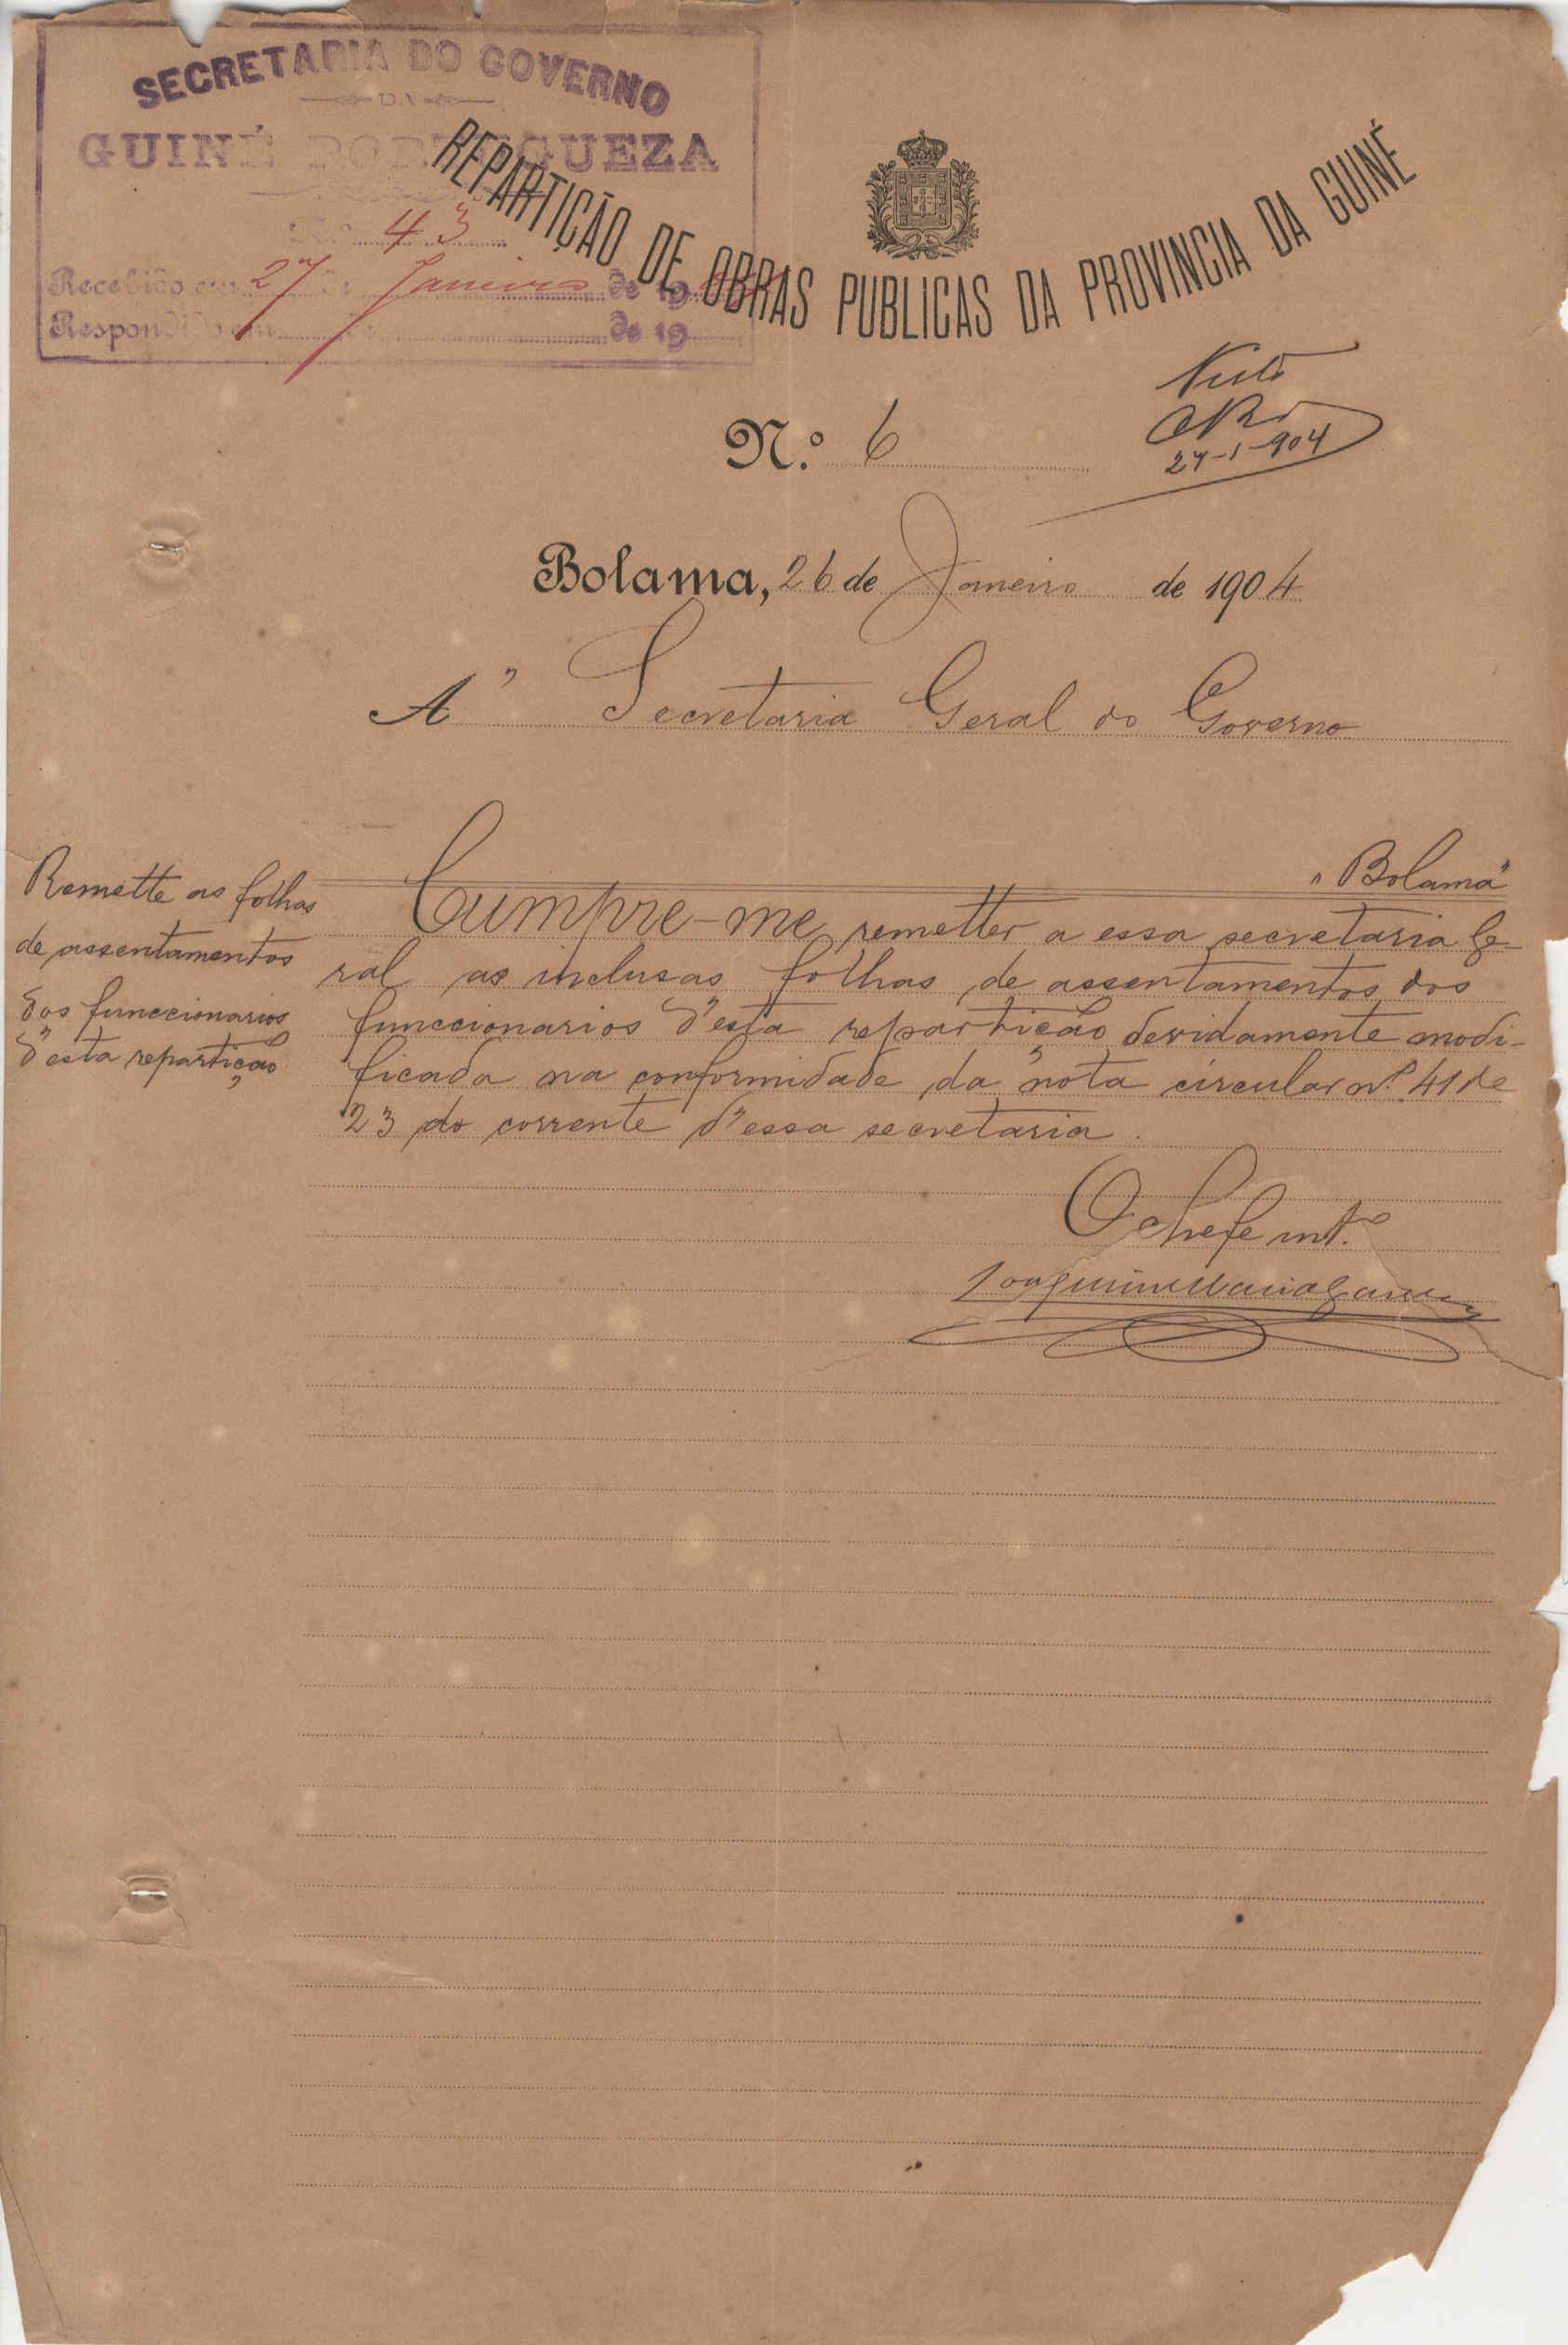 SECRETARIA DO GOVERNO
DA
GUINÉ PORTUGUEZA
N.º 43
Recebido em 27 de Janeiro de 19
Respondido em de de 19
REPARTIÇÃO DE OBRAS PUBLICAS DA PROVINCIA DA GUINÉ
Visto
27-1-904
N.º 6
Bolama, 26 de Janeiro de 1904
A" Secretaria Geral do Governo
"Bolama"
Remette as folhas
de assentamentos
dos funccionarios
d'esta repartição
Cumpre-me remetter a essa secretaria Ge-
ral as inclusas folhas de assentamentos dos
funccionarios d'esta repartição devidamente modi-
ficada na conformidade da nota circular n.º 41 de
23 do corrente d'essa secretaria.
O chefe int.º
Joaquim Maria